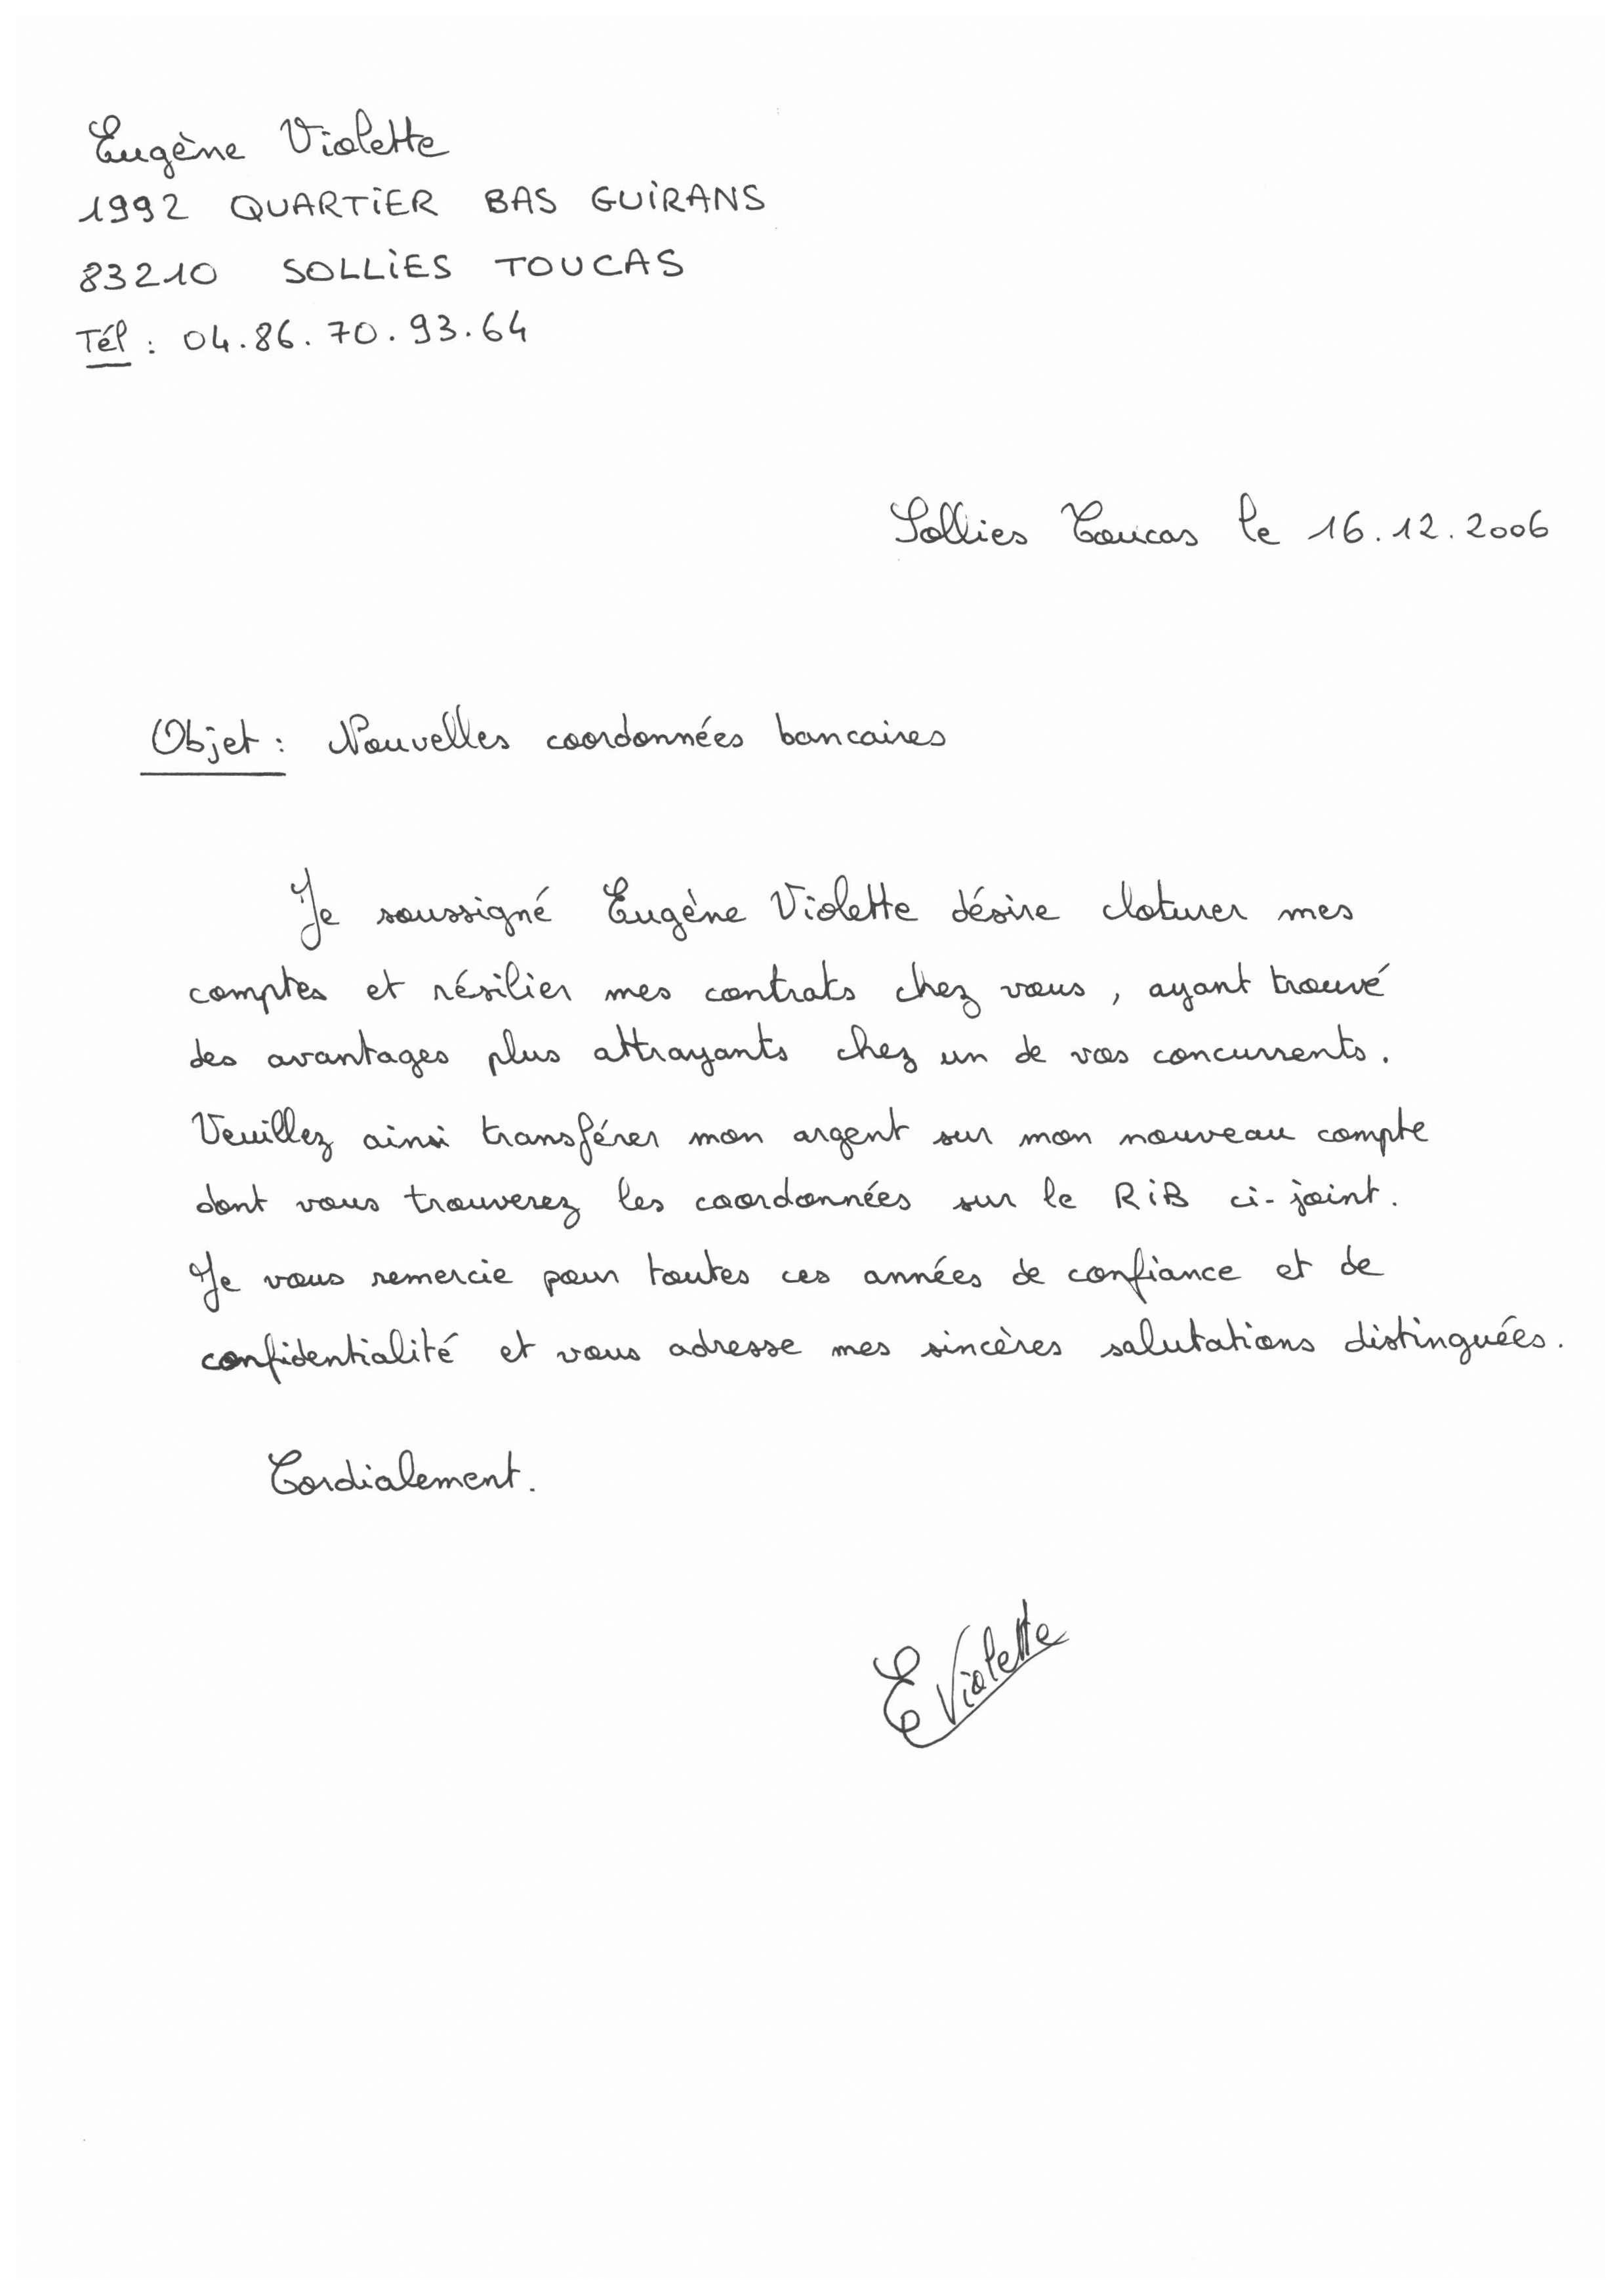 Eugène Violette
1992 QUARTIER BAS GUIRANS
83210 SOLLIES TOUCAS
Tél : 04.86.70.93.64
Sollies Toucas le 16.12.2006
Objet : Nouvelles coordonnées bancaires
Je soussigné Eugène Violette désire cloturer mes
comptes et résilier mes contrats chez vous, ayant trouvé
des avantages plus attrayants chez un de vos concurrents.
Veuillez ainsi transférer mon argent sur mon nouveau compte
dont vous trouverez les coordonnées sur le RiB ci-joint.
Je vous remercie pour toutes ces années de confiance et de
confidentialité et vous adresse mes sincères salutations distinguées.
Cordialement.
E Violette